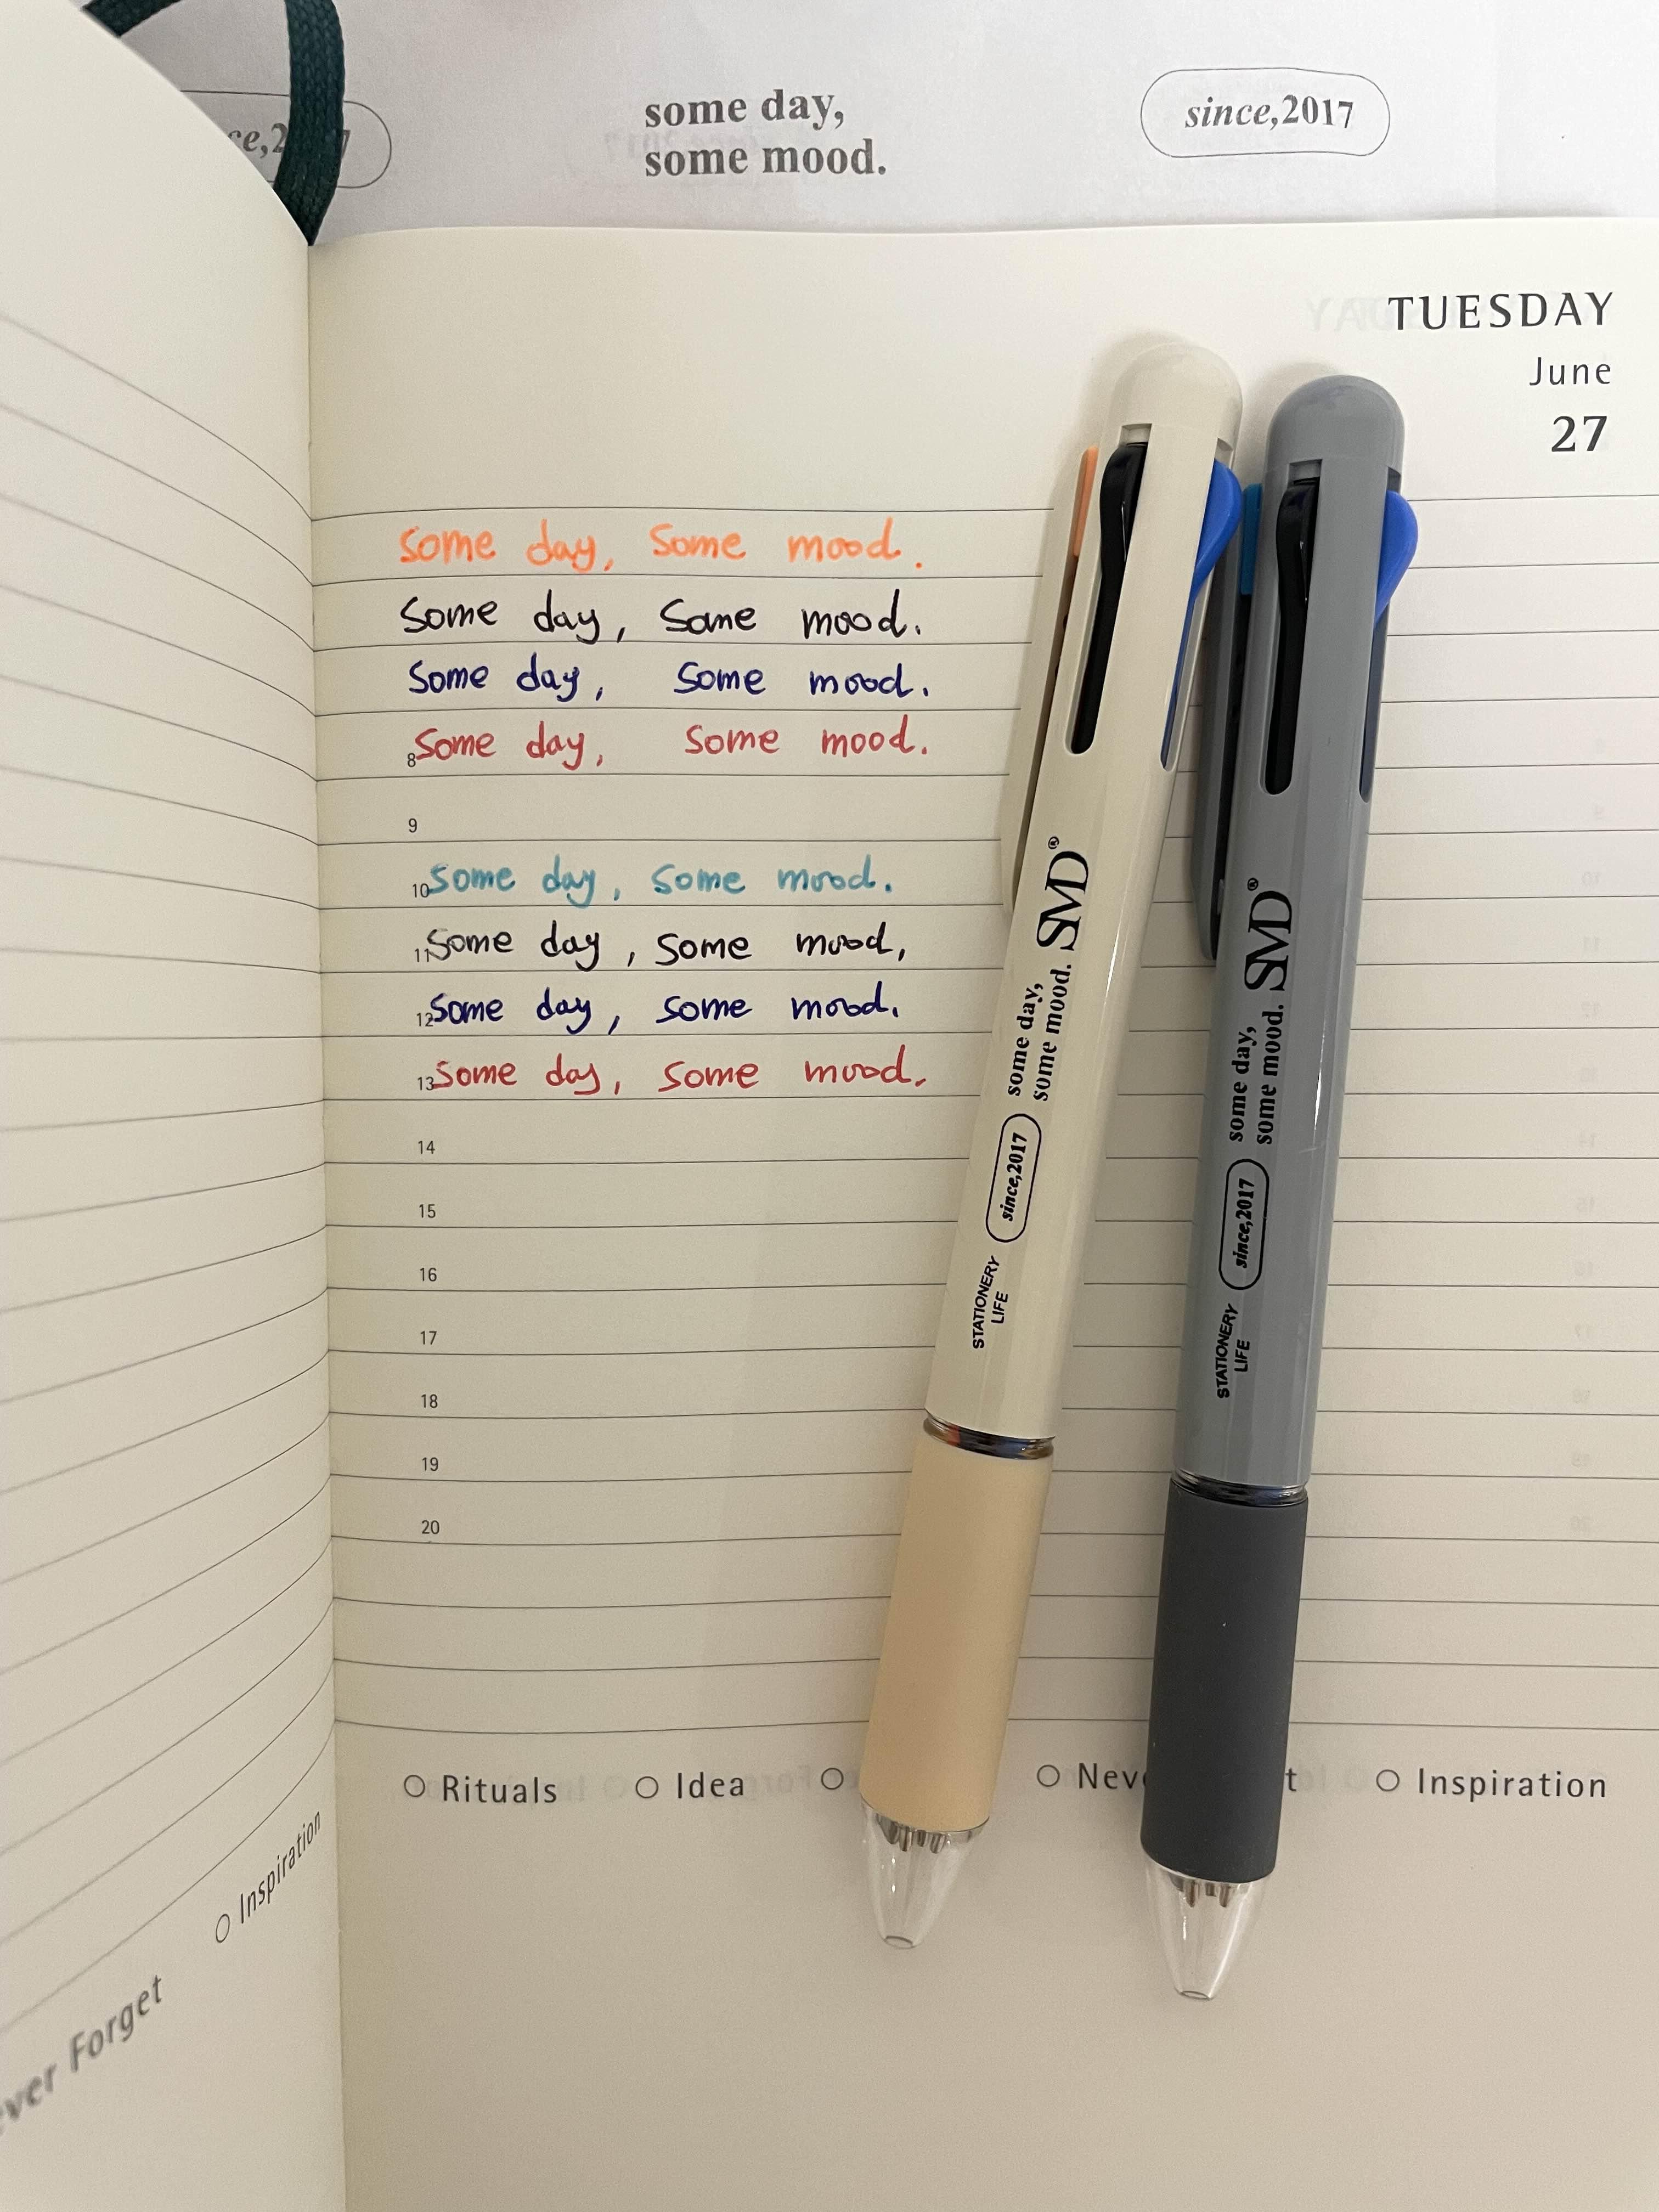 some day,
some mood.
since,2017
TUESDAY
June
27
some day, Some mood.
Some day, Some mood.
Some day, Some mood.
8 Some day, Some mood.
9
10 some day, some mood.
11 Some day, some mood,
12 Some day, some mood.
13 some day, some mood.
14
15
16
17
18
19
20
SMD®
some day,
some mood.
since,2017
STATIONERY
LIFE
SMD®
some day,
some mood.
since,2017
STATIONERY
LIFE
Rituals Idea Inspiration
Inspiration
Forget